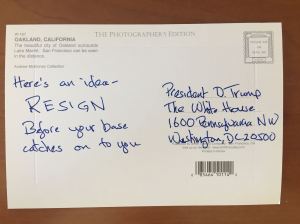 THE PHOTOGRAPHER'S EDITION
OAKLAND, CALIFORNIA
The beautiful city of Oakland surrounds
Lake Merritt. San Francisco can be seen
in the distance.
Andrew McKinney Collection
Here's an idea-
RESIGN
Before your base
catches on to you
President D Trump
The White House
1600 Pennsylvania NW
Washington, DC 20500